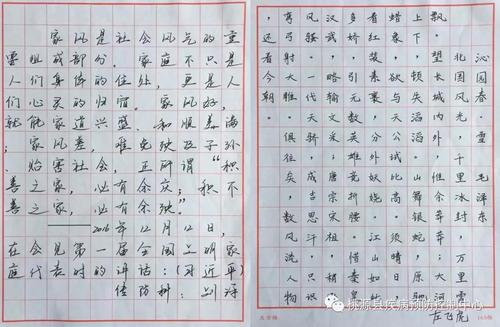 家风是社会风气的重
要组成部分。家庭不只是
人们身体的住处，更是人
们心灵的归宿。家风好，
就能家道兴盛、和顺美满
；家风差，难免殃及子孙
、贻害社会，正所谓“积
善之家，必有余庆；积不
善之家，必有余殃”。
——2016年12月12日，
在会见第一届全国文明家
庭代表时的讲话：（习近平）
传防科：刘涛
沁园春·雪 毛泽东
北国风光，千里冰封，万里雪
飘。望长城内外，惟余莽莽；大河
上下，顿失滔滔。山舞银蛇，原驰
蜡象，欲与天公试比高。须晴日，
看红装素裹，分外妖娆。江山如此
多娇，引无数英雄竞折腰。惜秦皇
汉武，略输文采；唐宗宋祖，稍
风骚。一代天骄，成吉思汗，只识
弯弓射大雕。俱往矣，数风流人物
，还看今朝。
左飞虎
桃源县疾病预防控制中心